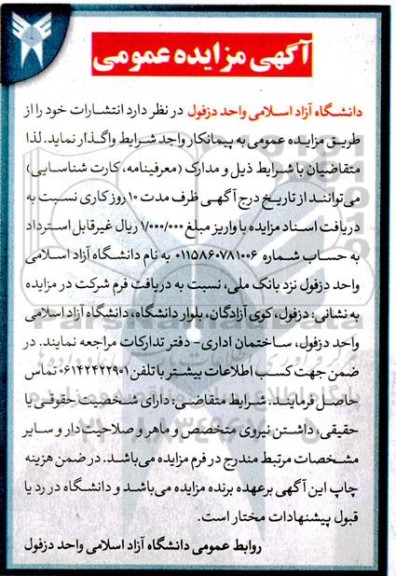 آگهی مزایده عمومی
دانشگاه آزاد اسلامی واحد دزفول در نظر دارد انتشارات خود را از
طریق مزایده عمومی به پیمانکار واجد شرایط واگذار نماید. لذا
متقاضیان با شرایط ذیل و مدارک (معرفینامه، کارت شناسایی)
می‌توانند از تاریخ درج آگهی ظرف مدت ۱۰ روز کاری نسبت به
دریافت اسناد مزایده با واریز مبلغ ۱/۰۰۰/۰۰۰ ریال غیرقابل استرداد
به حساب شماره ۰۱۱۵۸۶۰۷۸۱۰۰۶ به نام دانشگاه آزاد اسلامی
واحد دزفول نزد بانک ملی، نسبت به دریافت فرم شرکت در مزایده
به نشانی: دزفول، کوی آزادگان، بلوار دانشگاه، دانشگاه آزاد اسلامی
واحد دزفول، ساختمان اداری- دفتر تدارکات مراجعه نمایند. در
ضمن جهت کسب اطلاعات بیشتر با تلفن ۰۶۱۴۲۴۲۲۹۰۱ تماس
حاصل فرمایند. شرایط متقاضی: دارای شخصیت حقوقی یا
حقیقی، داشتن نیروی متخصص و ماهر و صلاحیت دار و سایر
مشخصات مرتبط مندرج در فرم مزایده می‌باشد. در ضمن هزینه
چاپ این آگهی برعهده برنده مزایده می‌باشد و دانشگاه در رد یا
قبول پیشنهادات مختار است.
روابط عمومی دانشگاه آزاد اسلامی واحد دزفول